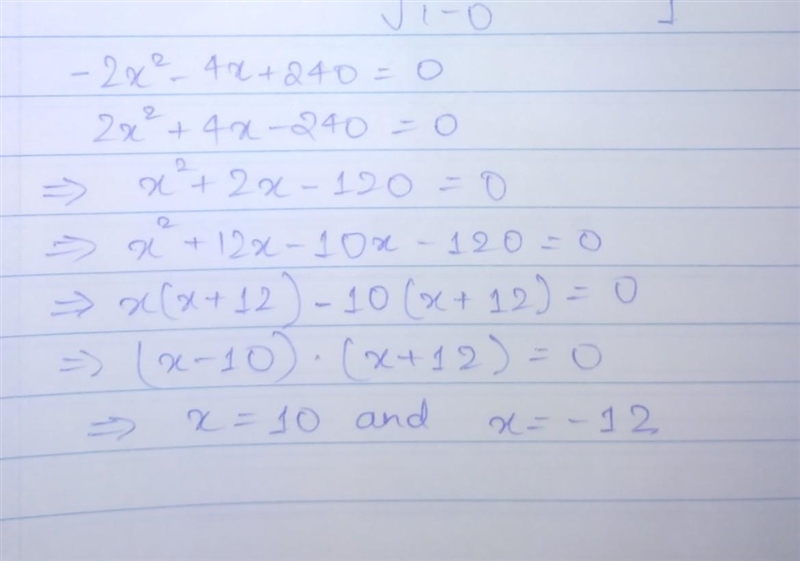 √1-0 ]
-2x² - 4x + 240 = 0
2x² + 4x - 240 = 0
⇒ x² + 2x - 120 = 0
⇒ x² + 12x - 10x - 120 = 0
⇒ x(x + 12) - 10(x + 12) = 0
⇒ (x - 10) · (x + 12) = 0
⇒ x = 10 and x = -12